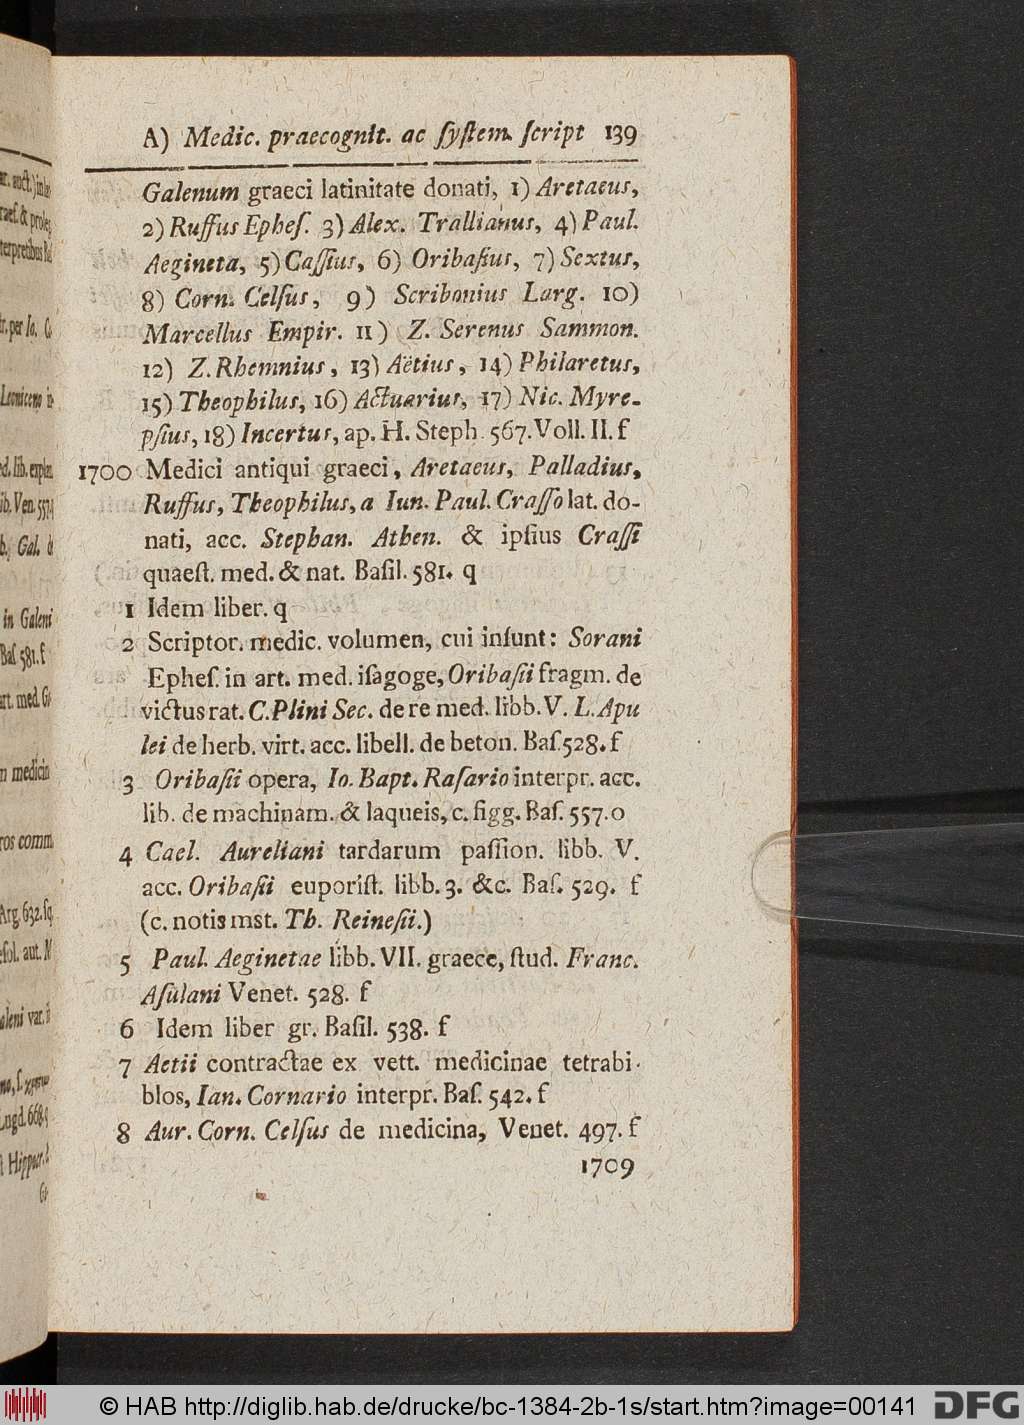 A) Medic. praecognit. ac ſyſtem. ſcript 139
Galenum graeci latinitate donati, 1) Aretaeus,
2) Ruffus Epheſ. 3) Alex. Trallianus, 4) Paul.
Aegineta, 5) Caſſius, 6) Oribaſius, 7) Sextus,
8) Corn. Celſus, 9) Scribonius Larg. 10)
Marcellus Empir. 11) Z. Serenus Sammon.
12) Z. Rhemnius, 13) Aëtius, 14) Philaretus,
15) Theophilus, 16) Actuarius, 17) Nic. Myre-
pſius, 18) Incertus, ap. H. Steph. 567. Voll. II. f
1700 Medici antiqui graeci, Aretaeus, Palladius,
Ruffus, Theophilus, a Iun. Paul. Craſſo lat. do-
nati, acc. Stephan. Athen. & ipſius Craſſi
quaeſt. med. & nat. Baſil. 581. q
1 Idem liber. q
2 Scriptor. medic. volumen, cui inſunt: Sorani
Epheſ. in art. med. iſagoge, Oribaſii fragm. de
victus rat. C. Plini Sec. de re med. libb. V. L. Apu
lei de herb. virt. acc. libell. de beton. Baſ. 528. f
3 Oribaſii opera, Io. Bapt. Raſario interpr. acc.
lib. de machinam. & laqueis, c. figg. Baſ. 557. o
4 Cael. Aureliani tardarum paſſion. libb. V.
acc. Oribaſii euporiſt. libb. 3. &c. Baſ. 529. f
(c. notis mst. Th. Reineſii.)
5 Paul. Aeginetae libb. VII. graece, ſtud. Franc.
Aſulani Venet. 528. f
6 Idem liber gr. Baſil. 538. f
7 Aetii contractae ex vett. medicinae tetrabi-
blos, Ian. Cornario interpr. Baſ. 542. f
8 Aur. Corn. Celſus de medicina, Venet. 497. f
1709
© HAB http://diglib.hab.de/drucke/bc-1384-2b-1s/start.htm?image=00141
DFG